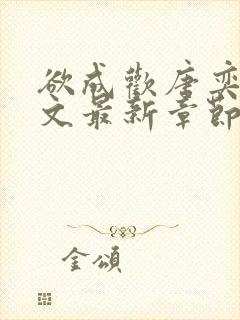 欲成歡唐奕
文最新章節
金頌